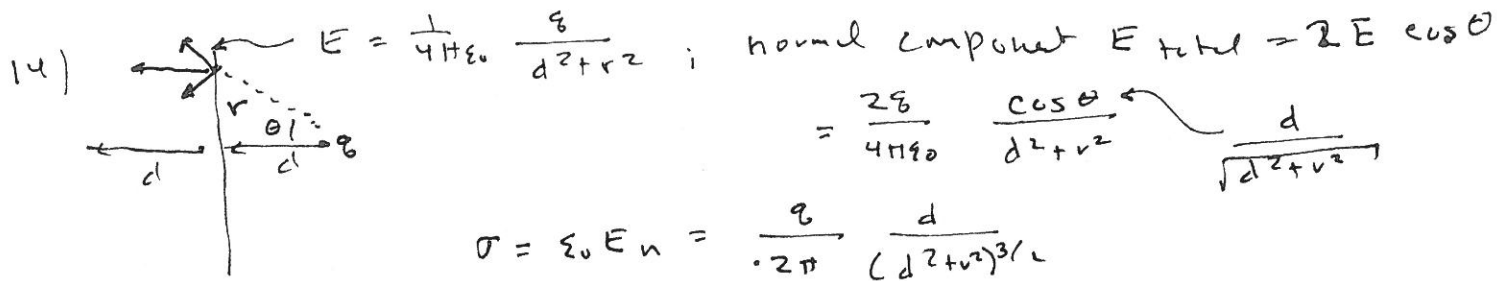 14) E = 1/4πε₀ q/d²+r² ; normal component E total = 2E cosθ
r
θ
d d q
= 2q/4πε₀ cosθ/d²+r² d/√d²+r²
σ = ε₀ Eₙ = q/2π d/(d²+r²)³/²